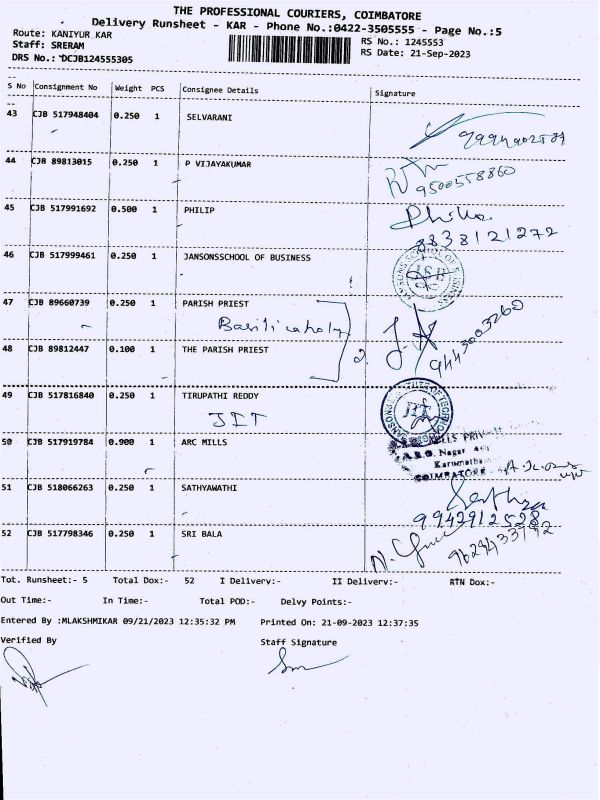 THE PROFESSIONAL COURIERS, COIMBATORE
Delivery Runsheet - KAR - Phone No.:0422-3505555 - Page No.:5
Route: KANIYUR KAR
RS No.: 1245553
Staff: SRERAM
RS Date: 21-Sep-2023
DRS No.: DCJB124555305
S No Consignment No Weight PCS Consignee Details Signature
43 CJB 517948404 0.250 1 SELVARANI
44 CJB 89813015 0.250 1 P VIJAYAKUMAR
9500558860
45 CJB 517991692 0.500 1 PHILIP
9838121272
46 CJB 517999461 0.250 1 JANSONSSCHOOL OF BUSINESS
JSB
47 CJB 89660739 0.250 1 PARISH PRIEST
9443003260
48 CJB 89812447 0.100 1 THE PARISH PRIEST
49 CJB 517816840 0.250 1 TIRUPATHI REDDY
JIT
JIT
50 CJB 517919784 0.900 1 ARC MILLS
Nagar
COIMBATORE
51 CJB 518066263 0.250 1 SATHYAWATHI
9942912528
52 CJB 517798346 0.250 1 SRI BALA
9629433792
Tot. Runsheet:- 5 Total Dox:- 52 I Delivery:- II Delivery:- RTN Dox:-
Out Time:- In Time:- Total POD:- Delvy Points:-
Entered By :MLAKSHMIKAR 09/21/2023 12:35:32 PM Printed On: 21-09-2023 12:37:35
Verified By Staff Signature